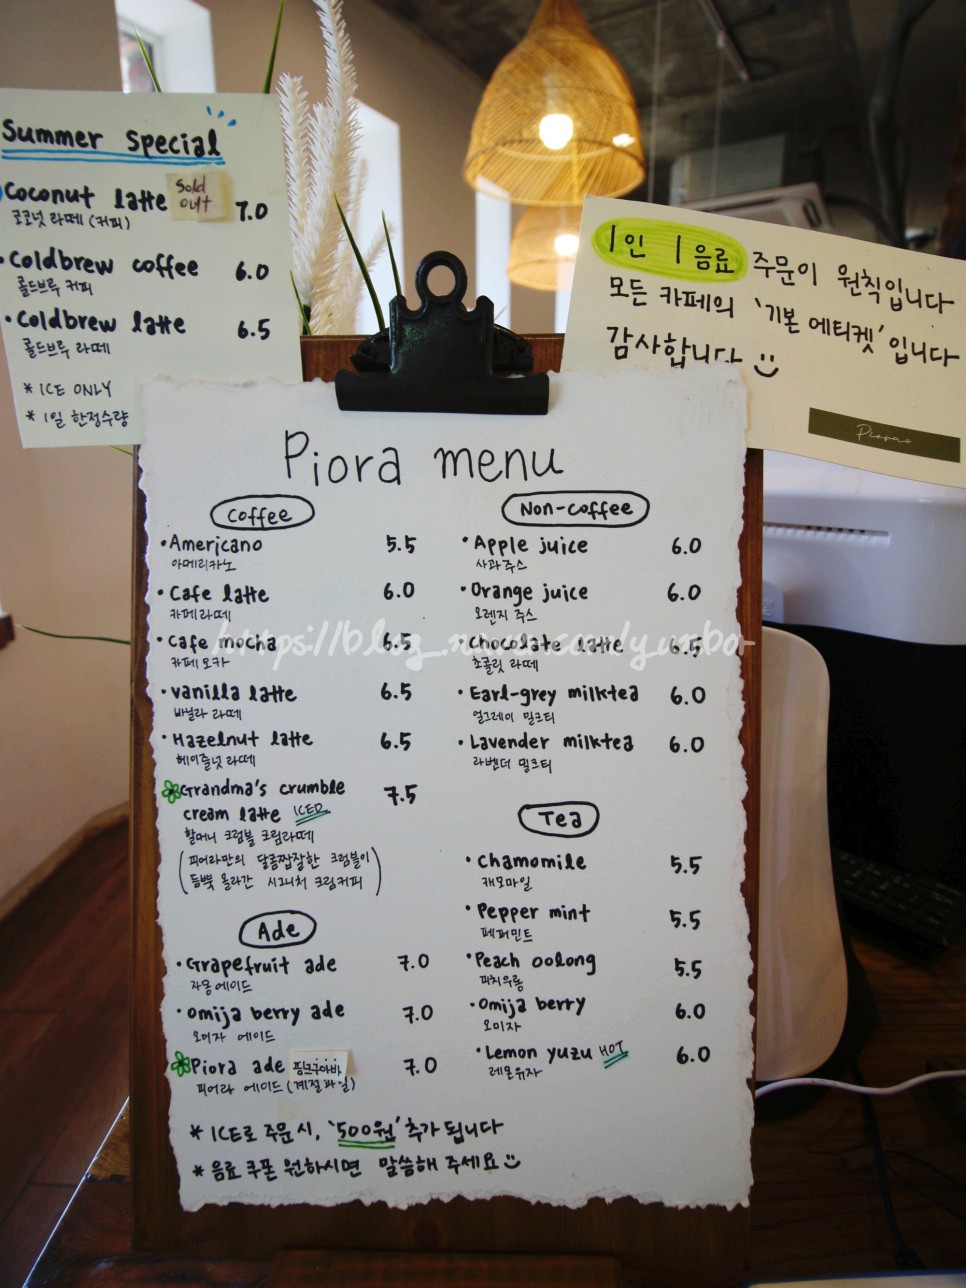 Summer special
Coconut latte
Sold out
7.0
코코넛 라떼 (커피)
Coldbrew coffee 6.0
콜드브루 커피
Coldbrew latte 6.5
콜드브루 라떼
* ICE ONLY
* 1일 한정수량
1인 1음료 주문이 원칙입니다
모든 카페의 '기본 에티켓' 입니다
감사합니다
Piora
Piora menu
Coffee
Americano 5.5
아메리카노
Cafe latte 6.0
카페라떼
Cafe mocha 6.5
카페 모카
Vanilla latte 6.5
바닐라 라떼
Hazelnut latte 6.5
헤이즐넛 라떼
Grandma's crumble 7.5
cream latte ICED
할머니 크럼블 크림라떼
(피어라만의 달콤짭잘한 크럼블이
듬뿍 올라간 시그니처 크림커피)
Ade
Grapefruit ade 7.0
자몽에이드
Omija berry ade 7.0
오미자 에이드
Piora ade 핑크구아바 7.0
피어라 에이드 (계절과일)
Non-coffee
Apple juice 6.0
사과주스
Orange juice 6.0
오렌지 주스
Chocolate latte 6.5
초콜릿 라떼
Earl-grey milktea 6.0
얼그레이 밀크티
Lavender milktea 6.0
라벤더 밀크티
Tea
Chamomile 5.5
캐모마일
Pepper mint 5.5
페퍼민트
Peach oolong 5.5
피치우롱
Omija berry 6.0
오미자
Lemon yuzu HOT 6.0
레몬유자
* ICE로 주문시, '500원' 추가 됩니다
* 음료 쿠폰 원하시면 말씀해 주세요